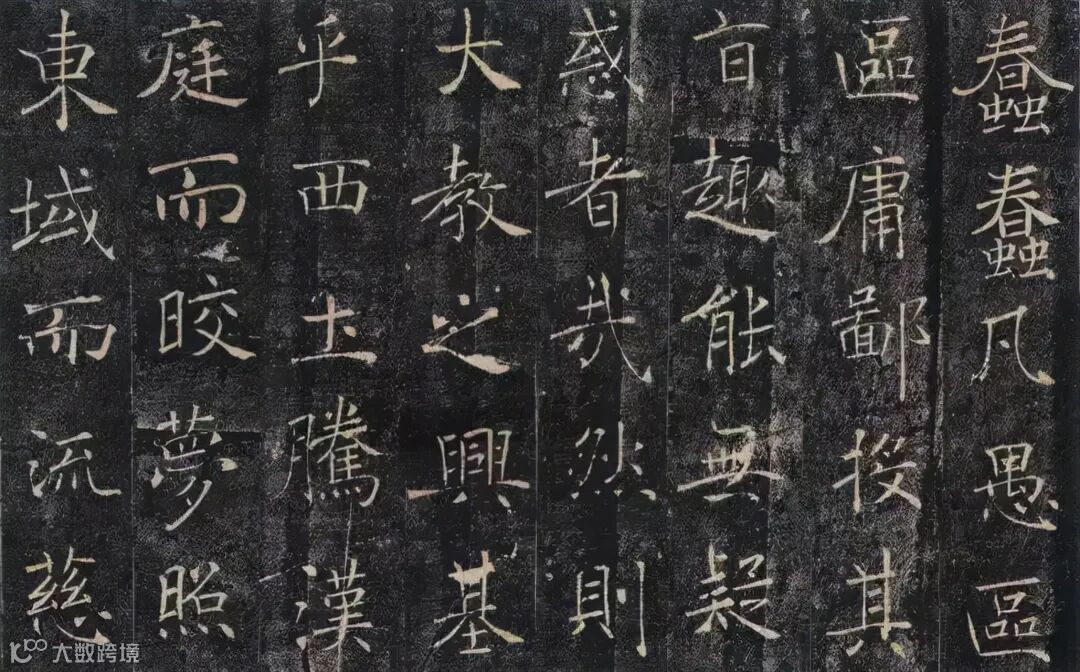 蠢蠢凡愚區
區庸鄙投其
旨趣能無疑
惑者哉然則
大教之興基
乎西土騰漢
庭而晈夢照
東域而流慈
大数跨境